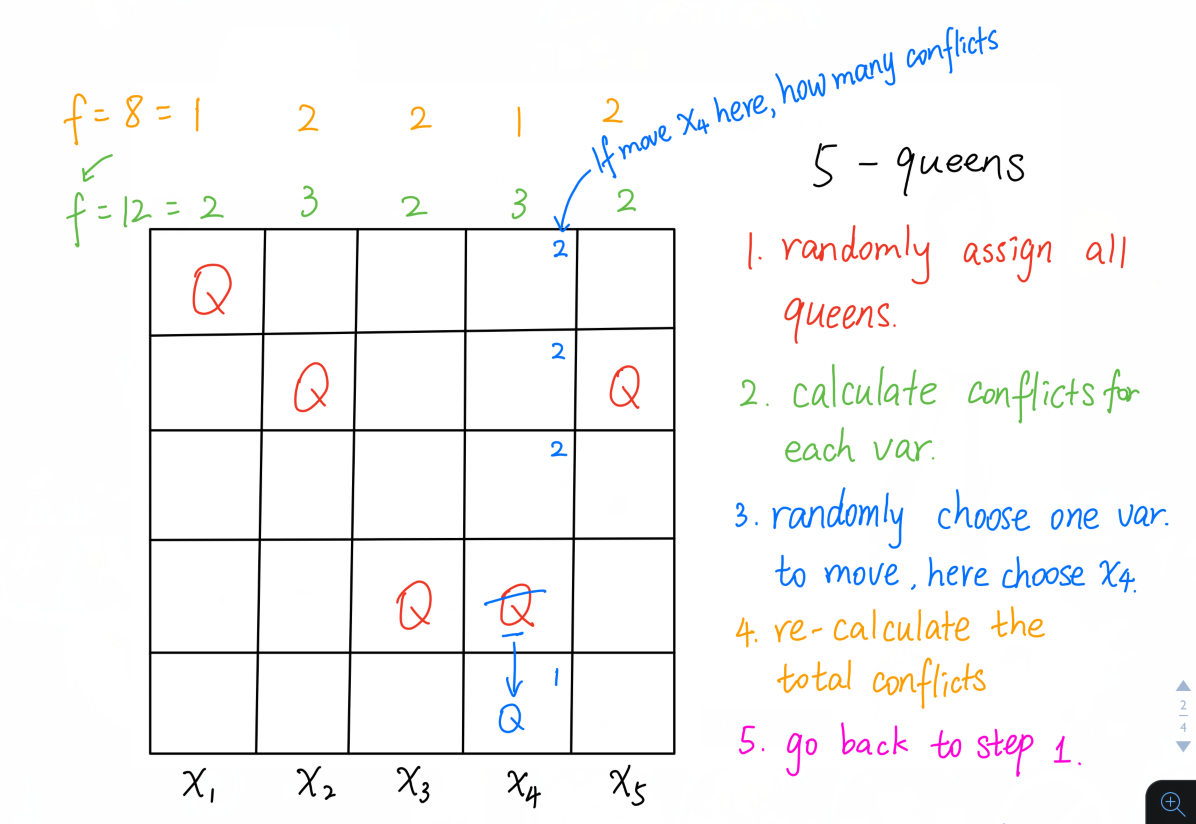 If move X₄ here, how many conflicts
f = 8 = 1 2 2 1 2
f = 12 = 2 3 2 3 2
5 - queens
2
Q
2
Q Q
2
Q Q
1
Q
X₁ X₂ X₃ X₄ X₅
1. randomly assign all
queens.
2. calculate conflicts for
each var.
3. randomly choose one var.
to move, here choose X₄.
4. re-calculate the
total conflicts
5. go back to step 1.
2
4